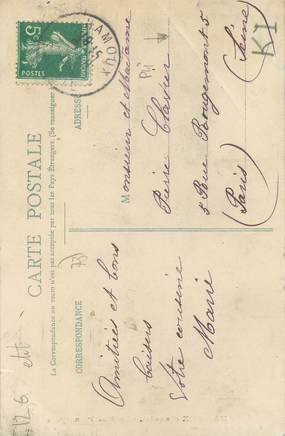 CARTE POSTALE
La Correspondance au recto n'est pas acceptée par tous les Pays Étrangers. (Se renseigner
CORRESPONDANCE
ADRESSE
Amitiés et bons
baisers
Votre cousine
Marie
Monsieur et Madame
Pierre
5 Rue Rougemont 5
(Paris) (Seine)
5c
POSTES
K1
73